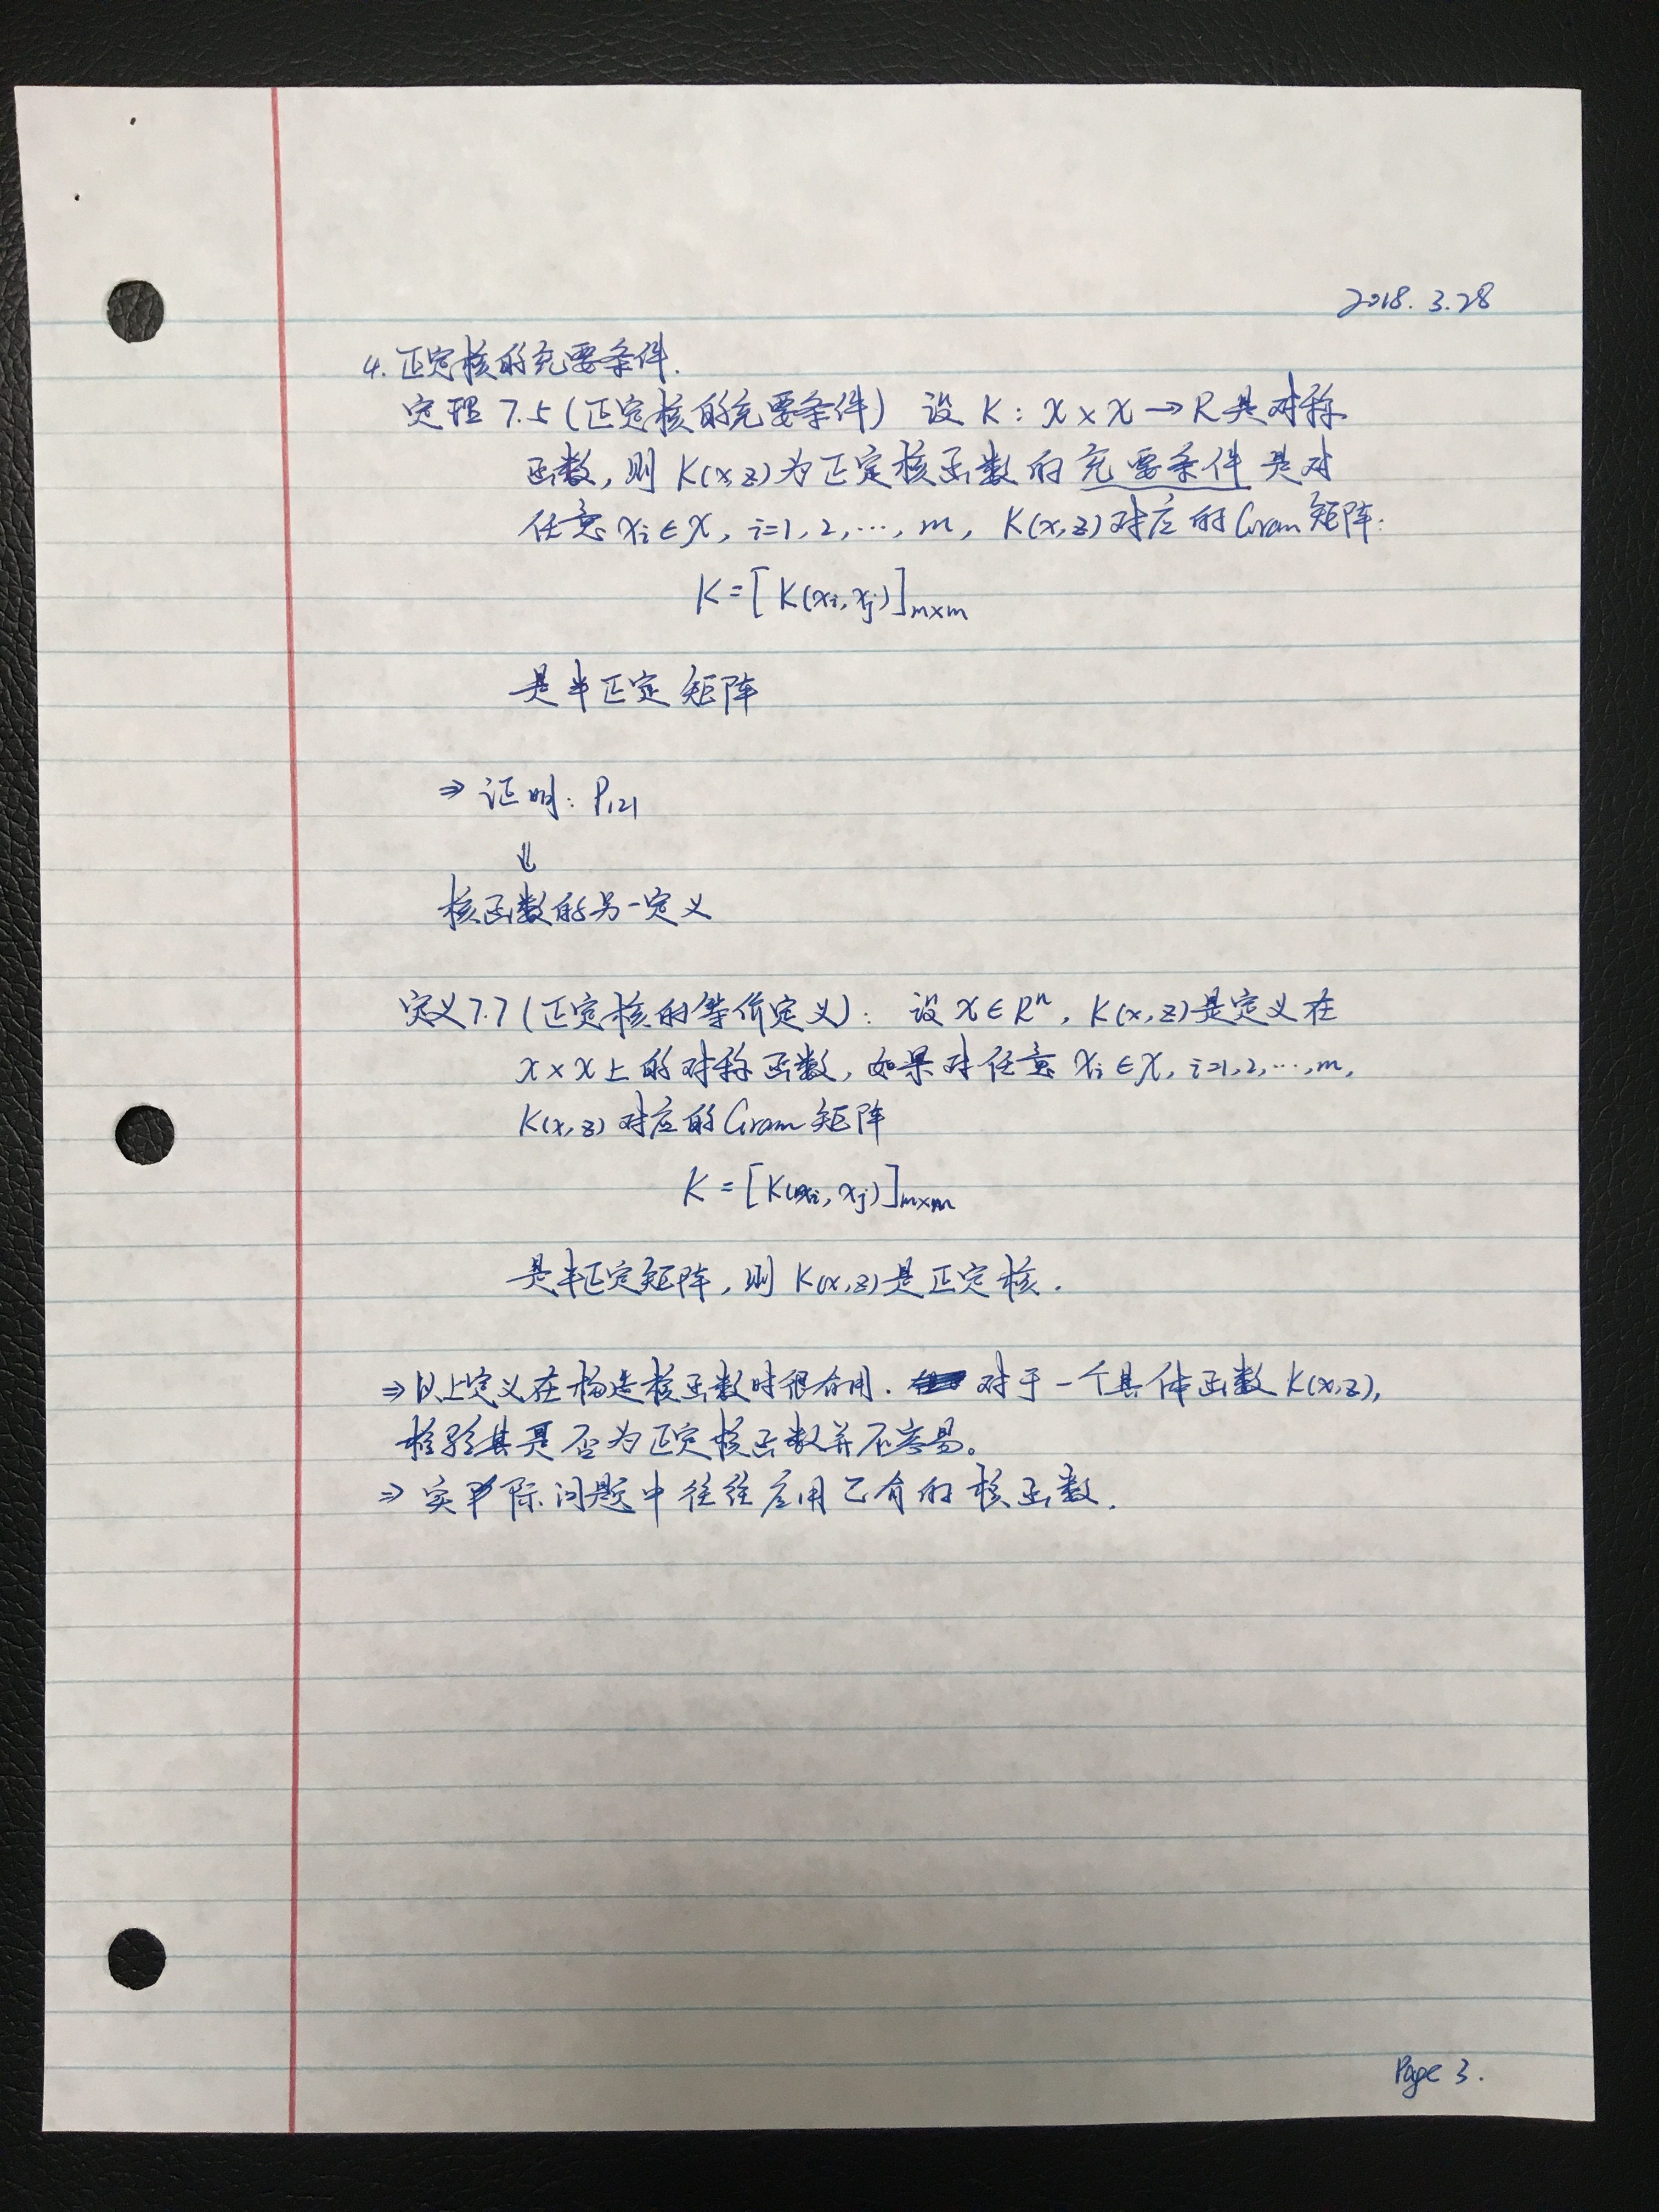 2018.3.28
4. 正定核的充要条件.
定理 7.5 (正定核的充要条件) 设 K: X × X → R 是对称
函数, 则 K(x,z) 为正定核函数的充要条件是对
任意 xi ∈ X, i=1,2,…,m, K(x,z) 对应的 Gram 矩阵:
K = [K(xi, xj)]m×m
是半正定矩阵
⇒ 证明: P121
⇓
核函数的另一定义
定义7.7 (正定核的等价定义): 设 X ∈ Rⁿ, K(x,z) 是定义在
X × X 上的对称函数, 如果对任意 xi ∈ X, i=1,2,…,m,
K(x,z) 对应的 Gram 矩阵
K = [K(xi, xj)]m×m
是半正定矩阵, 则 K(x,z) 是正定核.
⇒ 以上定义在构造核函数时很有用. 对于一个具体函数 K(x,z),
检验其是否为正定核函数并不容易。
⇒ 实际问题中往往应用已有的核函数.
Page 3.